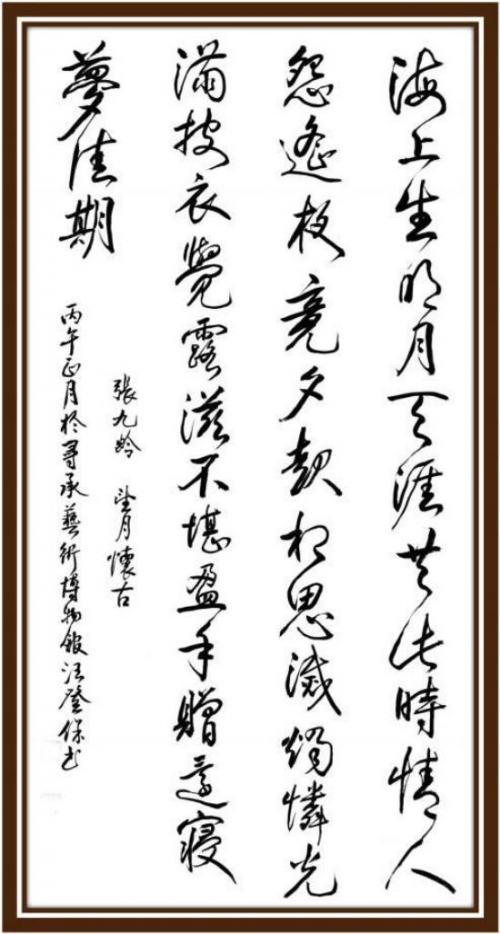 海上生明月天涯共此時情人
怨遙夜竟夕起相思滅燭憐光
滿披衣覺露滋不堪盈手贈還寢
夢佳期
張九龄 望月懷古
丙午正月於尋承藝術博物館汪登保书